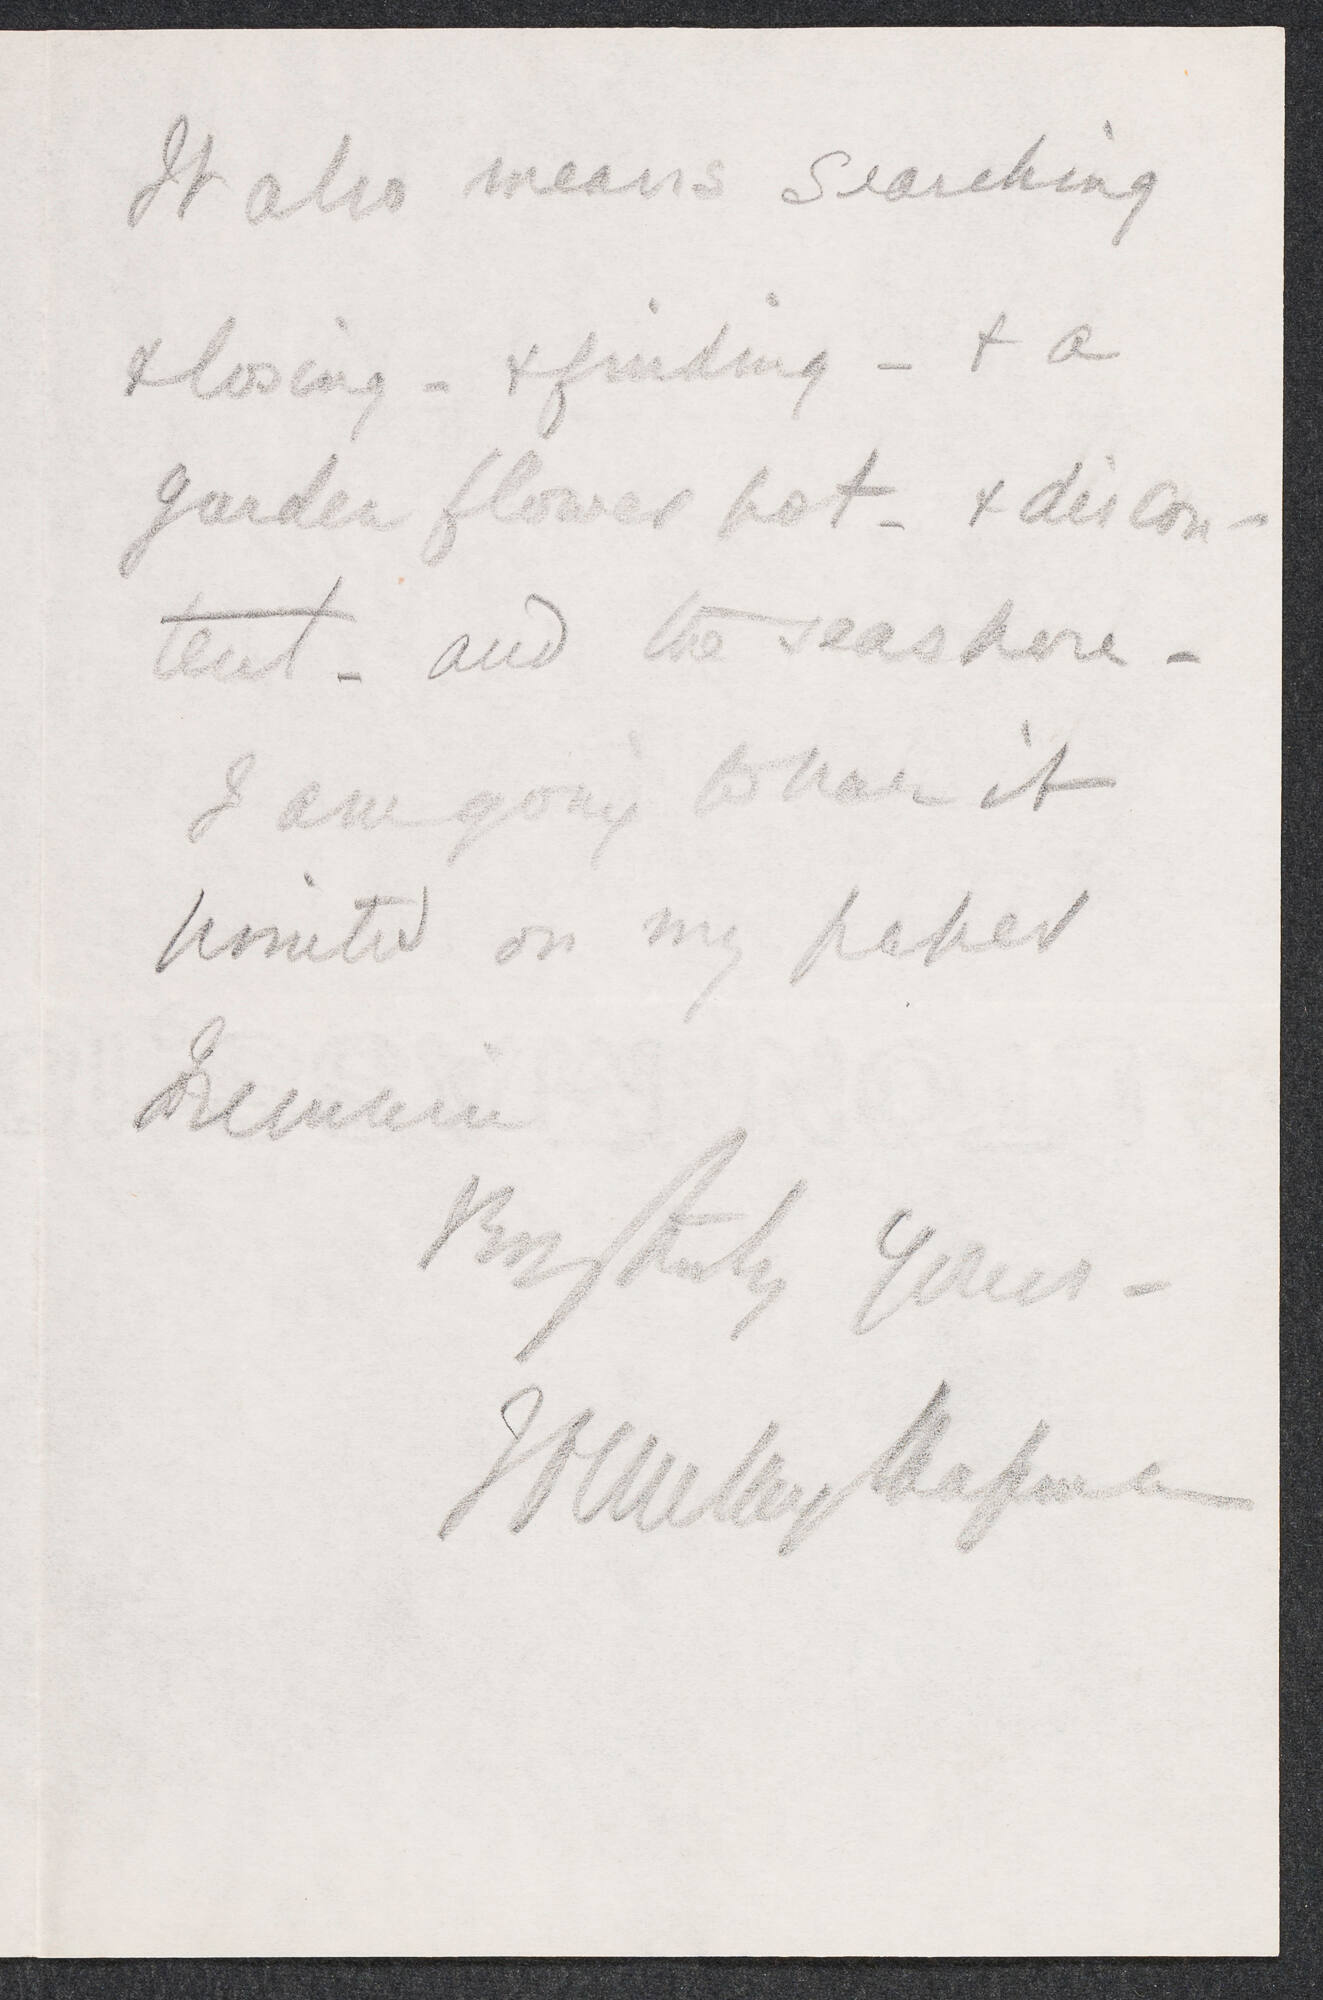 It also means searching
& losing - & finding - & a
garden flower pot - & discon-
tent - and the seashore -
I am going to have it
printed on my paper
I remain
Very truly yours -
Chapman